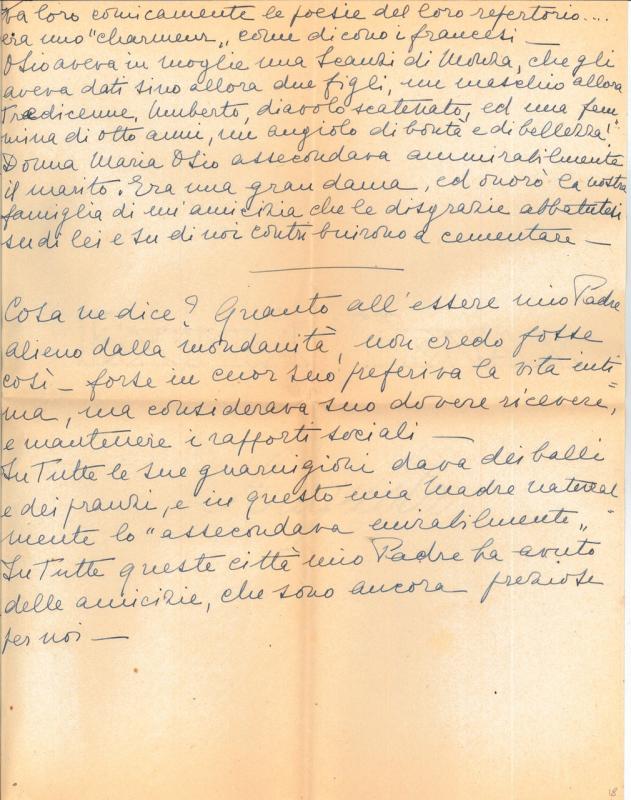 va loro comicamente le poesie del loro repertorio....
era uno "charmeur„ come dicono i francesi —
Osio aveva in moglie una Scanzi di Monza, che gli
aveva dati sino allora due figli, un maschio allora
tredicenne, Umberto, diavolo scatenato, ed una fem
mina di otto anni, un angiolo di bontà e di bellezza!
Donna Maria Osio assecondava ammirabilmente
il marito. Era una gran dama, ed onorò la nostra
famiglia di un'amicizia che le disgrazie abbattutesi
su di lei e su di noi contribuirono a cementare —
Cosa ne dice? Quanto all'essere mio Padre
alieno dalla mondanità, non credo fosse
così — forse in cuor suo preferiva la vita inti=
ma, ma considerava suo dovere ricevere,
e mantenere i rapporti sociali —
In Tutte le sue guarnigioni dava dei balli
e dei pranzi, e in questo mia Madre natural
mente lo "assecondava mirabilmente„
In Tutte queste città mio Padre ha avuto
delle amicizie, che sono ancora preziose
per noi —
18